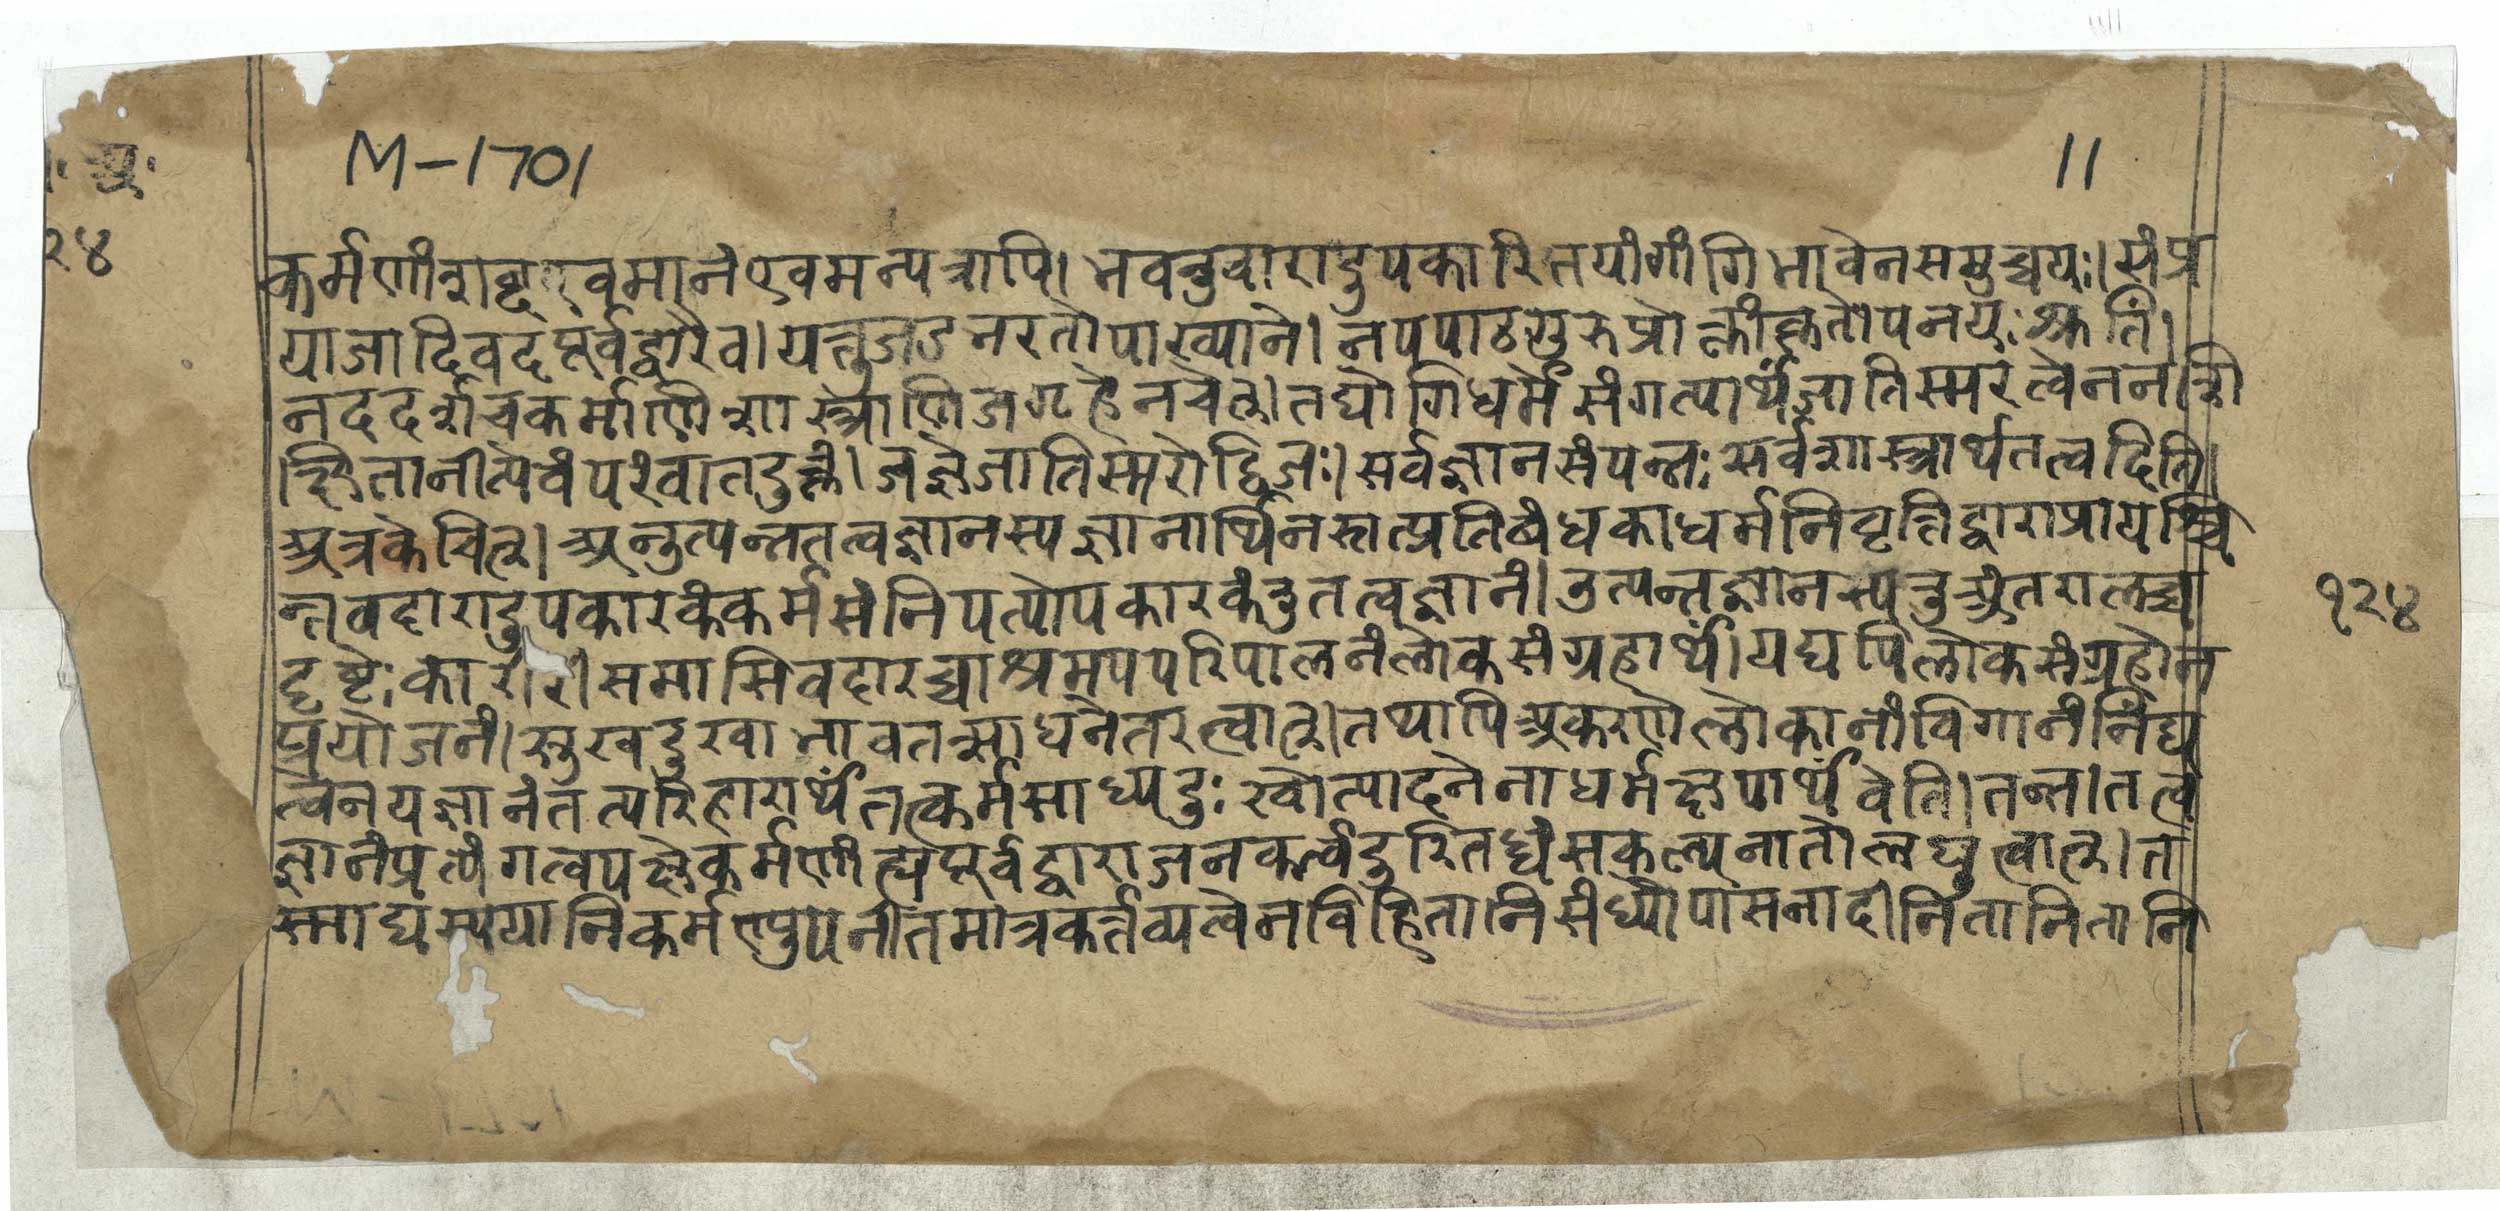 M-1701
11
२४
कर्मणां शब्द एव मानं एवमन्यत्रापि। भवन्तुवारादुपकारितयांगांगिभावेनसमुच्चयः। संप्र
याजादिवदपूर्वद्वारैव। यत्तुजडभरतोपाख्याने। नपपाठगुरुप्रोक्तांकृतोपनयःश्रुतिं।
नददर्शचकर्माणिशास्त्राणिजगृहेनचेत्। तद्योगिधर्मसंगत्यार्थंजातिस्मरत्वेननशि
क्षितानीत्येवंपरंवातदुक्तं। जज्ञेजातिस्मरोद्विजः। सर्वज्ञानसंपन्नः सर्वशास्त्रार्थतत्वदिति।
अत्रकेचित्। अनुत्पन्नतत्वज्ञानस्यज्ञानार्थिनस्तत्प्रतिबंधकाधर्मनिवृत्तिद्वाराप्रायश्चि
त्तवदारादुपकारकंकर्मसंनिपत्योपकारकंतुतत्वज्ञानं। उत्पन्नज्ञानस्यतुअंतरालब्ध
दृष्टेः कारीरीसमाप्तिवदारब्धाश्रमपपरिपालनंलोकसंग्रहार्थं। यद्यपिलोकसंग्रहोन
प्रयोजनं। सुखदुखाभावतत्साधनेतरत्वात्। तथापिअकरणेलोकानांविगानंनिंद्य
त्वेनयज्ञानंतत्परिहारार्थंतत्कर्मसाध्यदुःखोत्पादनेनाधर्मक्षपार्थंवेति। तन्न। तत्व
ज्ञानंप्रत्यंगत्वपक्षेकर्मणांह्यपूर्वद्वाराजनकत्वंदुरितध्वंसकल्पनातोलघुत्वात्। त
स्माद्यस्ययानिकर्मण्युपनीतमात्रकर्तव्यत्वेनविहितानिसंध्योपासनादीनितानितानि
१२४